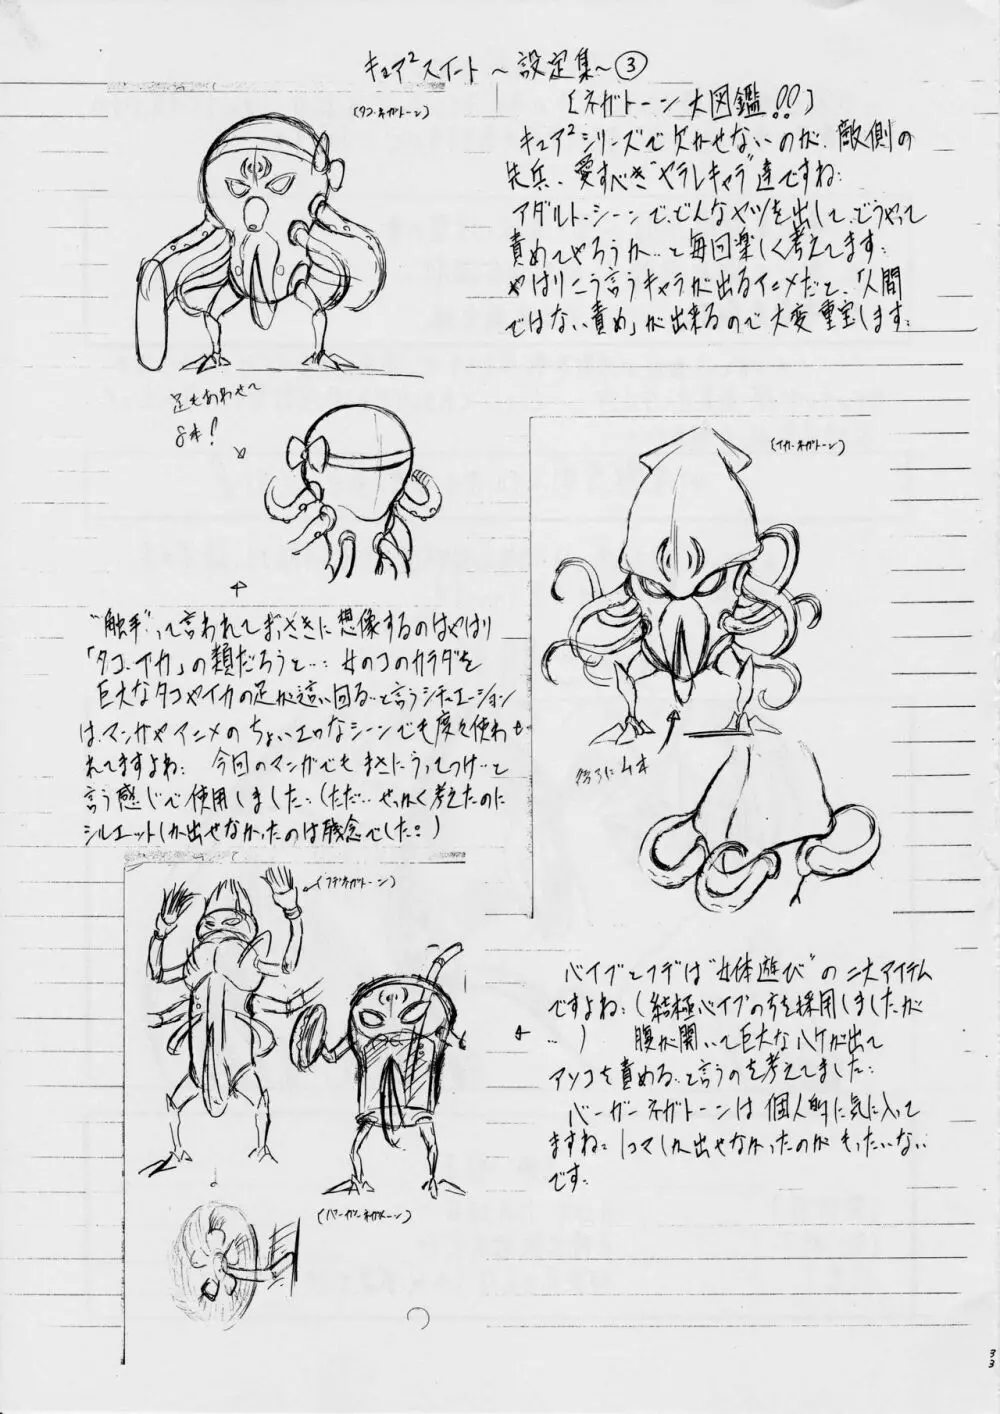 キュア²スイート 〜設定集〜③
(ネガトーン大図鑑!!)
(タコ・ネガトーン)
キュア²シリーズで欠かせないのが、敵側の
先兵、愛すべき"ヤラレキャラ"達ですね:
アダルト・シーンで、どんなヤツを出して、どうやって
責めてやろうか…と毎回楽しく考えてます:
やはりこう言うキャラが出るアニメだと、「人間
ではない責め」が出来るので大変重宝します:
足もあわせて
8本!
(イカ・ネガトーン)
"触手"って言われてまっさきに想像するのはやはり
「タコ、イカ」の類だろうと…: 女のコのカラダを
巨大なタコやイカの足が這い回る…と言うシチュエーション
は、マンガやアニメのちょいエロなシーンでも度々使わ
れてますよね: 今回のマンガでもまさにうってつけ…と
言う感じで使用しました:(ただ…せっかく考えたのに
シルエットしか出せなかったのは残念でした:)
後ろに4本
(フデネガトーン)
バイブとフデは"女体遊び"の二大アイテム
ですよね:(結極バイブの方を採用しましたが
…) 腹が開いて巨大なハケが出て
アソコを責める…と言うのを考えてました:
バーガーネガトーンは個人的に気に入って
ますね: 1コマしか出せなかったのがもったいない
です:
(バーガーネガトーン)
33